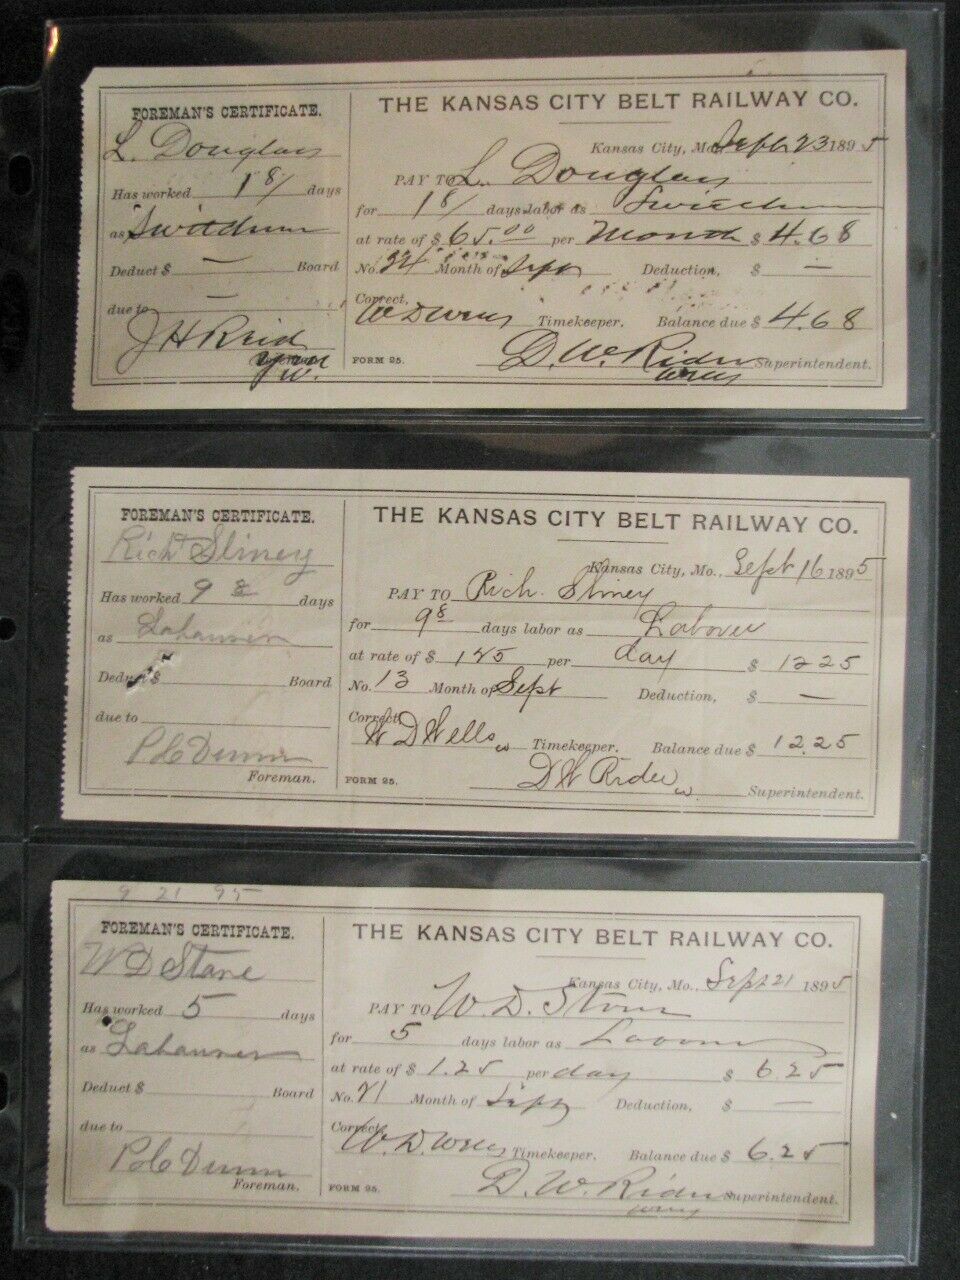 FOREMAN'S CERTIFICATE.
L. Douglas
Has worked 1 8/ days
as Switchman
Deduct $ — Board
due to —
J H Reid
THE KANSAS CITY BELT RAILWAY CO.
Kansas City, Mo. Sept. 23 1895
PAY TO L. Douglas
for 1 8/ days labor as Switchman
at rate of $ 65.00 per Month $ 4.68
No. 34 Month of Sept Deduction, $ —
Correct, W D Wells Timekeeper. Balance due $ 4.68
FORM 25. D. W. Rider Superintendent.
Wells
FOREMAN'S CERTIFICATE.
Rich Sliney
Has worked 9 8 days
as Labaurer
Deduct $ Board
due to
P. C Dunn
Foreman.
THE KANSAS CITY BELT RAILWAY CO.
Kansas City, Mo., Sept 16 1895
PAY TO Rich. Sliney
for 9 8 days labor as Laborer
at rate of $ 125 per day $ 12 25
No. 13 Month of Sept Deduction, $ —
Correct, W D Wells w Timekeeper. Balance due $ 12.25
FORM 25. D W Rider w Superintendent.
9 21 95
FOREMAN'S CERTIFICATE.
W D Stone
Has worked 5 days
as Labaurer
Deduct $ Board
due to
P. C Dunn
Foreman.
THE KANSAS CITY BELT RAILWAY CO.
Kansas City, Mo., Sept 21 1895
PAY TO W. D. Stone
for 5 days labor as Laborer
at rate of $ 1.25 per day $ 6.25
No. 21 Month of Sept Deduction, $ —
Correct, W. D. Wells Timekeeper. Balance due $ 6.25
FORM 25. D. W. Rider Superintendent.
Wells